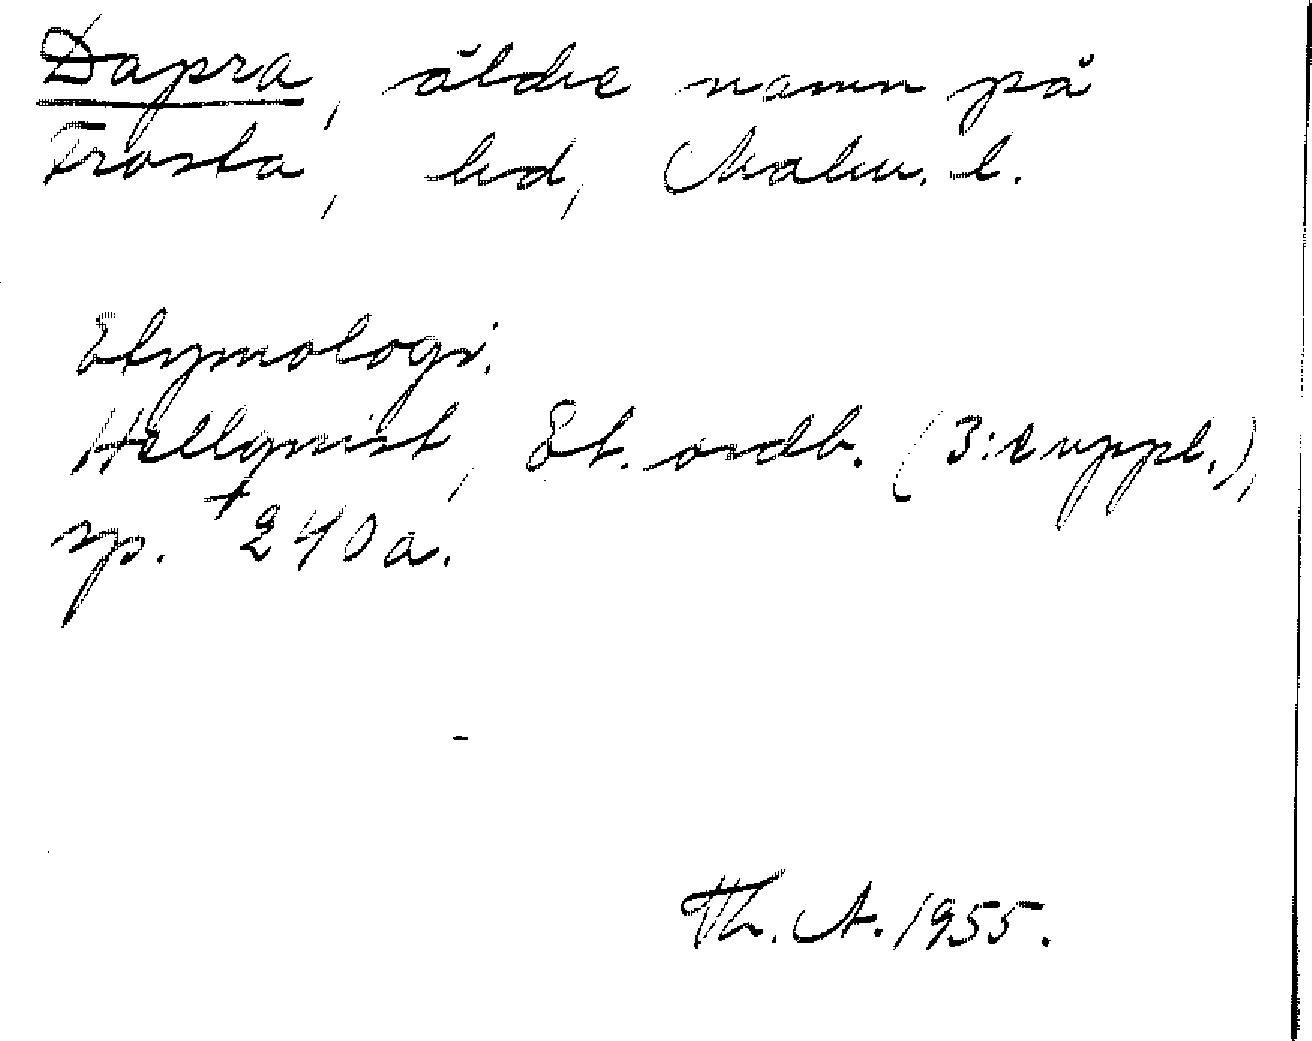 Dapra, äldre namn på
Frosta, hd, Malm. l.
Etymologi.
Hellqvist, Et. ordb. (3:e uppl.),
sp. +240a.
Th. A. 1955.